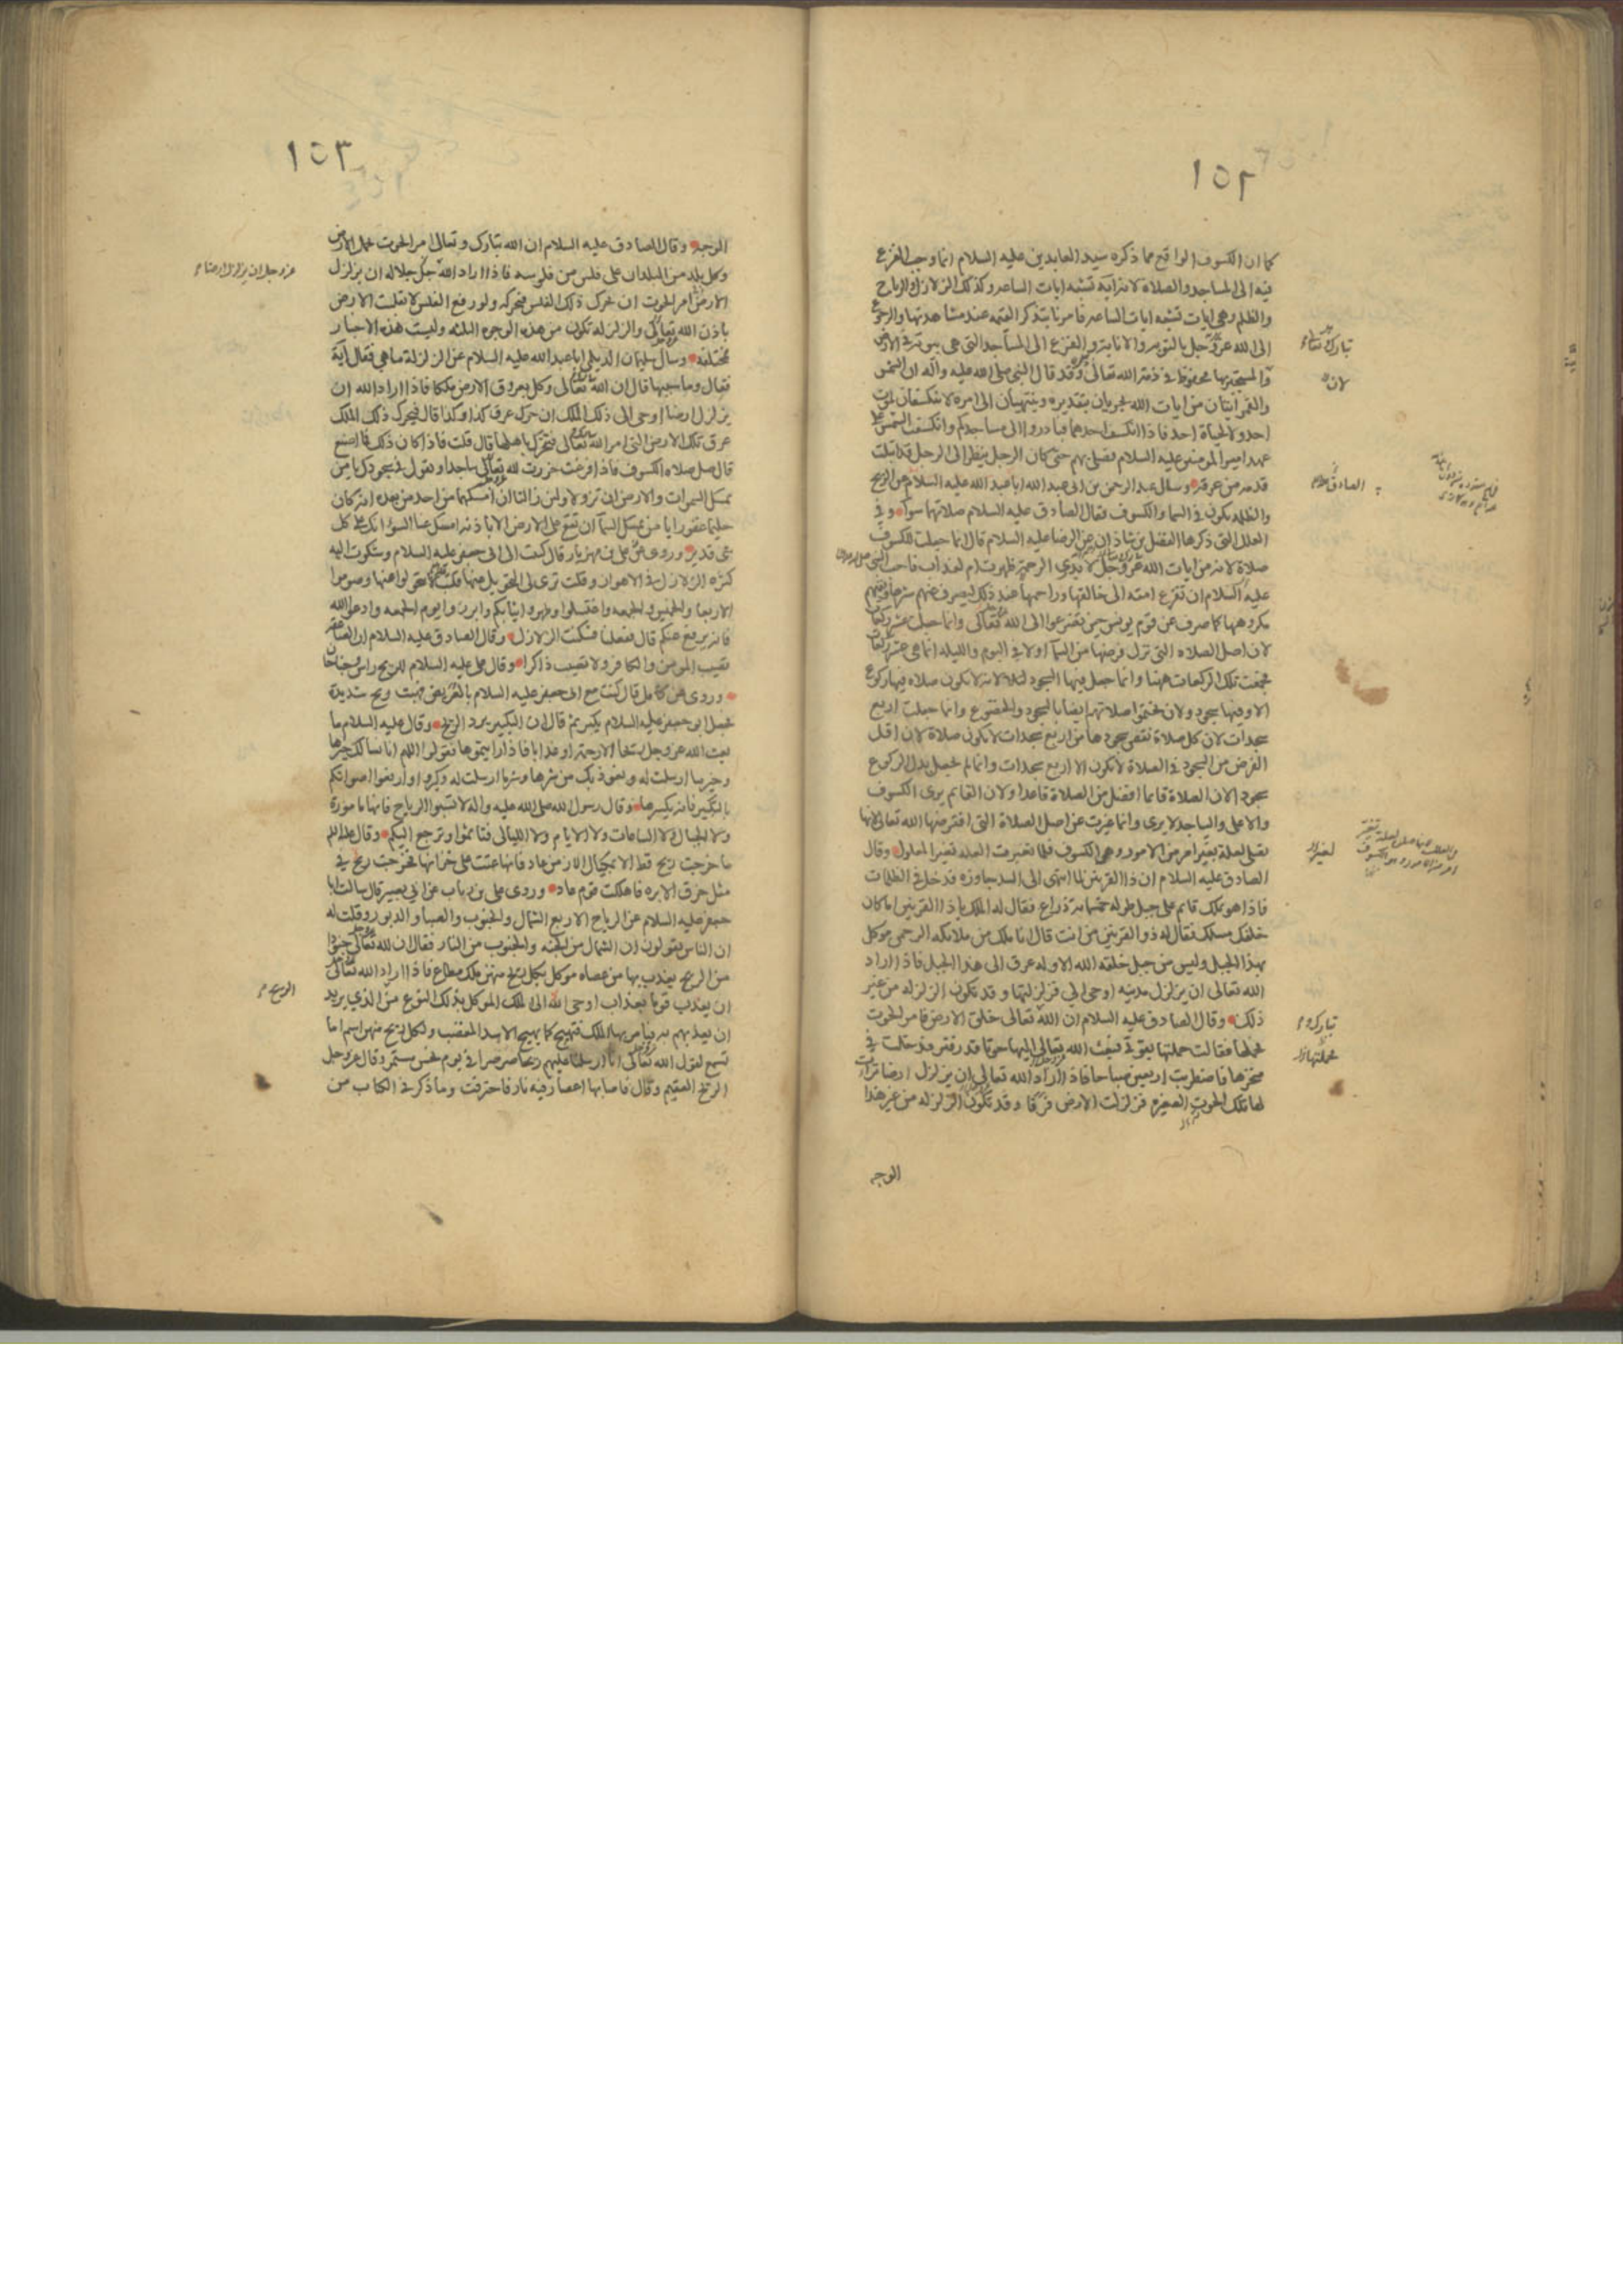 ١٥٢
كما ان الكسوف الواقع مما ذكره سيد العابدين عليه السلام انما وجب الفزع
فيه الى المساجد والصلاة لانه آية تشبه ايات الساعه وكذلك الزلازل والرياح
والظلم وهى ايات تشبه ايات الساعه فامرنا بتذكر القيمه عند مشاهدتها والرجوع
الى الله عز وجل بالتوبه والانابة والفزع الى المساجد التى هى بيوته فى الارض
تبارك وتعالى
والمستجير بها محفوظ فى ذمة الله تعالى وقد قال النبى صلى الله عليه واله ان الشمس
لان
والقمر ايتان من ايات الله يجريان بتقديره وينتهيان الى امره لا ينكسفان لموت
احد ولا لحياة احد فاذا انكسف احدهما فبادروا الى مساجدكم وانكسفت الشمس على
عهد امير المومنين عليه السلام فصلى بهم حتى كان الرجل ينظر الى الرجل قد ابتلت
قدمه من عرقه وسال عبد الرحمن بن ابى عبد الله ابا عبد الله عليه السلام عن الريح
الصادق
والظلمه تكون فى السما والكسوف فقال الصادق عليه السلام صلاتهما سوا وفى
العلل التى ذكرها الفضل بن شاذان عن الرضا عليه السلام قال انما جعلت للكسوف
صلاة لانه من ايات الله عز وجل لا يدرى الرحمة ظهرت ام لعذاب فاحب النبى
عليه السلام ان تفزع امته الى خالقها وراحمها عند ذلك ليصرف عنهم شرها ويقيهم
مكروهها كما صرف عن قوم يونس حين تضرعوا الى الله تعالى وانما جعلت عشر ركعات
لان اصل الصلاه التى نزل فرضها من السما اولا فى اليوم والليله انما هى عشر ركعات
فجمعت تلك الركعات ههنا وانما جعل فيها السجود لانه لا تكون صلاه فيها ركوع
الا وفيها سجود ولان يختموا صلاتهم ايضا بالسجود والخضوع وانما جعلت اربع
سجدات لان كل صلاة نقص سجودها من اربع سجدات لا تكون صلاة لان اقل
الفرض من السجود فى الصلاة لا يكون الا اربع سجدات وانما لم يجعل بدل الركوع
سجود لان الصلاة قائما افضل من الصلاة قاعدا ولان القايم يرى الكسوف
والاعلى والساجد لا يرى وانما غيرت عن اصل الصلاة التى افترضها الله تعالى لانها
تصلى لعلة تغير امر من الامور وهى الكسوف فلما تغيرت العله تغير المعلول وقال
الصادق عليه السلام ان ذا القرنين لما انتهى الى السد جاوزه فدخل فى الظلمات
فاذا هو بملك قايم على جبل طوله خمسماية ذراع فقال له الملك يا ذا القرنين اما كان
خلفك مسلك فقال له ذو القرنين من انت قال انا ملك من ملائكه الرحمن موكل
بهذا الجبل وليس من جبل خلقه الله الا وله عرق الى هذا الجبل فاذا اراد
الله تعالى ان يزلزل مدينه اوحى الى فزلزلتها وقد تكون الزلزله من غير
ذلك وقال الصادق عليه السلام ان الله تعالى خلق الارض فامر الحوت
تبارك و
فحملتها فقالت حملتها بقوتى فبعث الله تعالى اليها حوتا قدر فتر فدخلت فى
منخرها فاضطربت اربعين صباحا فاذا اراد الله تعالى ان يزلزل ارضا تراءت
لها تلك الحوت الصغيره فزلزلت الارض فرقا وقد تكون الزلزله من غير هذا
الوجه
١٥٣
الوجه وقال الصادق عليه السلام ان الله تبارك وتعالى امر الحوت بحمل الارض
وكل بلد من البلدان على فلس من فلوسه فاذا اراد الله جل جلاله ان يزلزل
عز وجل ان يزلزل ارضا
الارض امر الحوت ان يحرك ذلك الفلس فيحركه ولو رفع الفلس لانقلبت الارض
باذن الله تعالى والزلزله تكون من هذه الوجوه الثلثه وليست هذه الاخبار
مختلفه وسال سليمان الديلمى ابا عبد الله عليه السلام عن الزلزلة ما هى فقال آية
فقال وما سببها قال ان الله تعالى وكل بعروق الارض ملكا فاذا اراد الله ان
يزلزل ارضا اوحى الى ذلك الملك ان حرك عرق كذا وكذا قال فيحرك ذلك الملك
عرق تلك الارض التى امر الله تعالى فتحرك باهلها قال قلت فاذا كان ذلك فما اصنع
قال صل صلاه الكسوف فاذا فرغت خررت لله تعالى ساجدا وتقول فى سجودك يا من
يمسك السموات والارض ان تزولا ولئن زالتا ان امسكهما من احد من بعده انه كان
حليما غفورا يا من يمسك السمآ ان تقع على الارض الا باذنه امسك عنا السوء انك على كل
شى قدير وروى عن على بن مهزيار قال كتبت الى ابى جعفر عليه السلام وشكوت اليه
كثرة الزلازل فى الاهواز وقلت ترى لى التحويل عنها فكتب لا تتحولوا عنها وصوموا
الاربعا والخميس والجمعه واغتسلوا وطهروا ثيابكم وابرزوا يوم الجمعه وادعوا الله
فانه يرفع عنكم قال ففعلنا فسكنت الزلازل وقال الصادق عليه السلام ان الصاعقه
تصيب المومن والكافر ولا تصيب ذاكرا وقال على عليه السلام للريح راس وجناحان
وروى عن كامل قال كنت مع ابى جعفر عليه السلام بالعريض فهبت ريح شديدة
فجعل ابو جعفر عليه السلام يكبر ثم قال ان التكبير يرد الريح وقال عليه السلام ما
بعث الله عز وجل ريحا الا رحمة او عذابا فاذا رايتموها فقولوا اللهم انا نسالك خيرها
وخير ما ارسلت له ونعوذ بك من شرها وشر ما ارسلت له وكبروا وارفعوا اصواتكم
بالتكبير فانه يكسرها وقال رسول الله صلى الله عليه واله لا تسبوا الرياح فانها مامورة
ولا الجبال ولا الساعات ولا الايام ولا الليالى فتاثموا وترجع اليكم وقال عليه السلم
ما خرجت ريح قط الا بمكيال الا زمن عاد فانها عتت على خزانها فخرجت ريح فى
مثل خرق الابره فاهلكت قوم عاد وروى على بن رياب عن ابى بصير قال سالت ابا
جعفر عليه السلام عن الرياح الاربع الشمال والجنوب والصبا والدبور وقلت له
ان الناس يقولون ان الشمال من الجنه والجنوب من النار فقال ان لله تعالى جنودا
من الريح يعذب بها من عصاه موكل بكل ريح منهن ملك مطاع فاذا اراد الله تعالى
ان يعذب قوما بعذاب اوحى الله الى الملك الموكل بذلك النوع من الذي يريد
الريح
ان يعذبهم به فيامر بها الملك فتهيج كما يهيج الاسد المغضب ولكل ريح منهن اسم اما
تسمع لقول الله تعالى انا ارسلنا عليهم ريحا صرصرا فى يوم نحس مستمر وقال عز وجل
الريح العقيم وقال فاصابها اعصار فيه نار فاحترقت وما ذكر فى الكتاب من